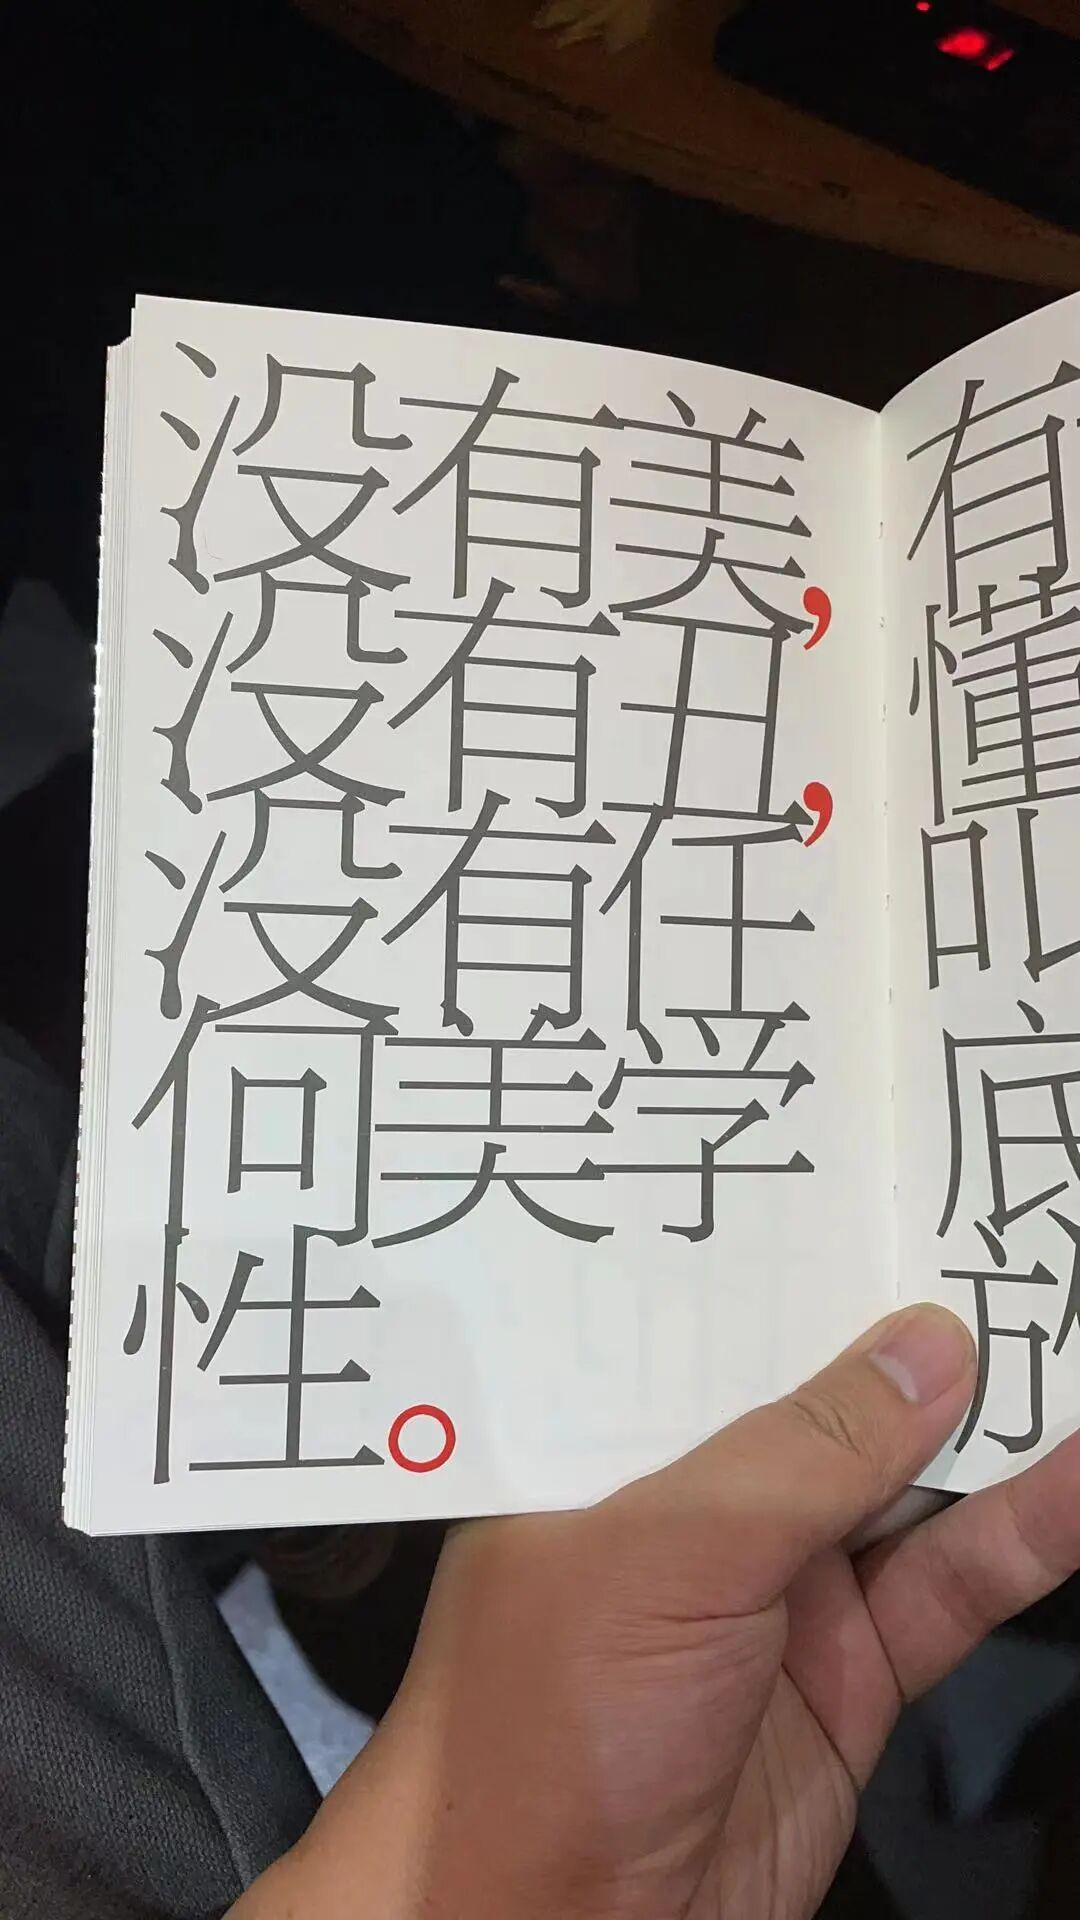 没有美，
没有丑，
没有任
何美学
性。
有
懂
叫
底
放